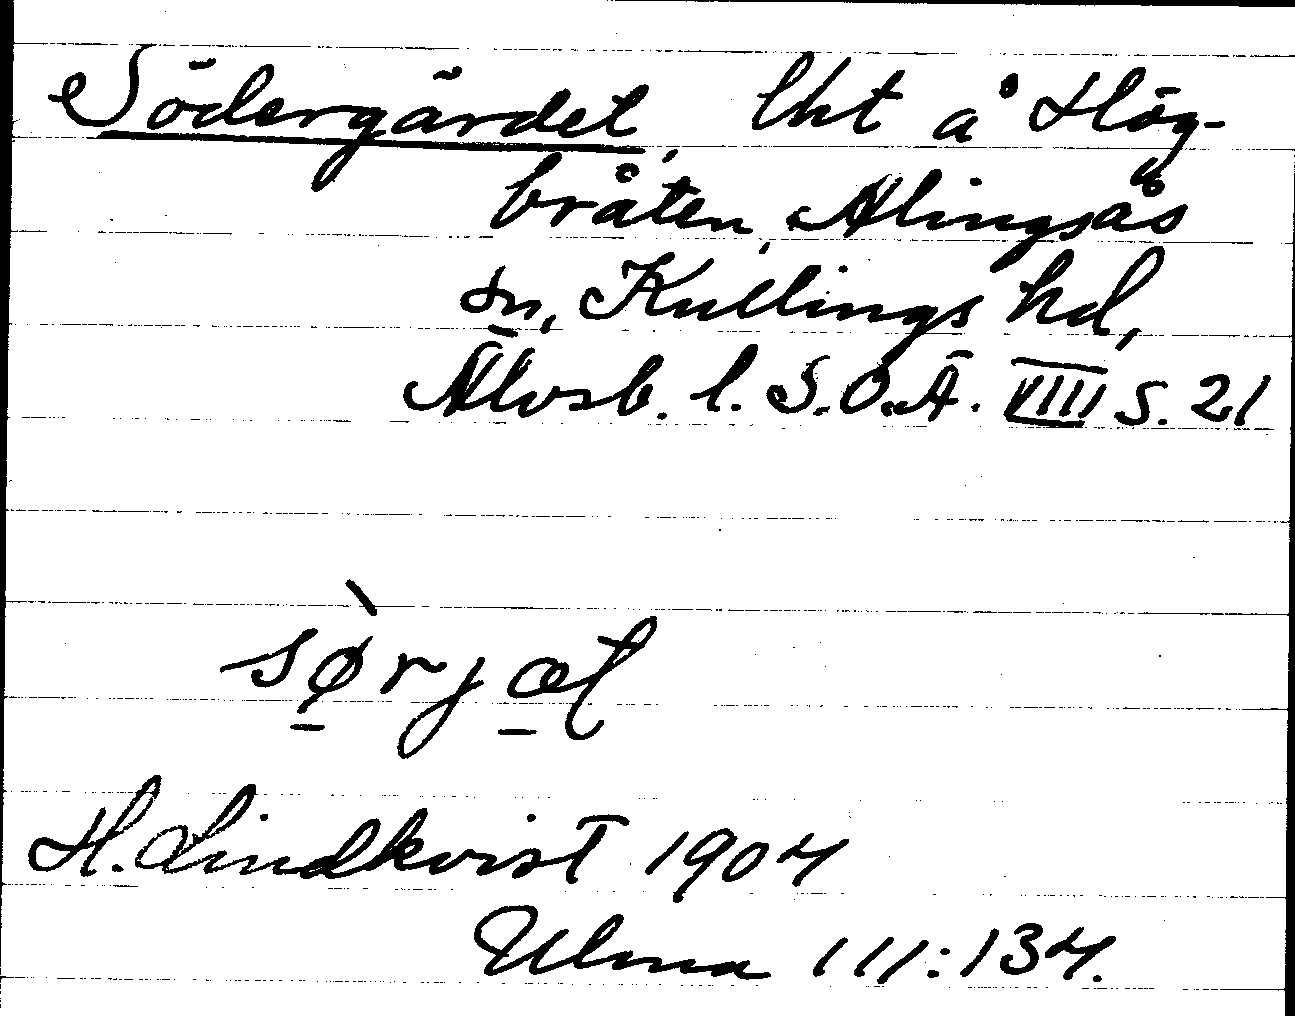 Södergärdet, lht å Hög-
bråten, Alingsås
sn, Kullings hd,
Älvsb. l. S.O.Ä. VIII s. 21
sø̱̀rjæ̱t
H. Lindkvist 1904
Ulma 111:134.